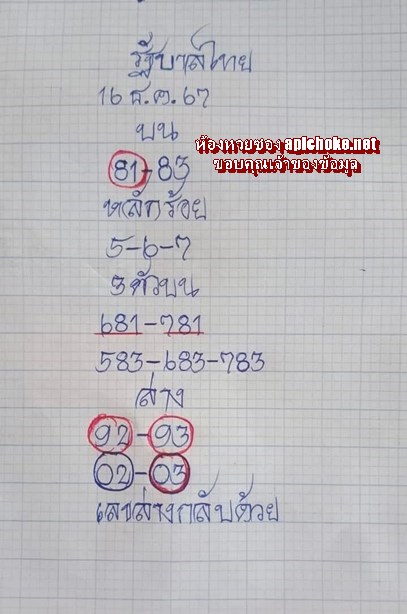 รัฐบาลไทย
16 ธ.ค. 67
บน
ห้องหวยซอง apichoke.net
ขอบคุณเจ้าของข้อมูล
81-83
หลักร้อย
5-6-7
3 ตัวบน
681-781
583-683-783
ล่าง
92-93
02-03
เลขล่างกลับด้วย